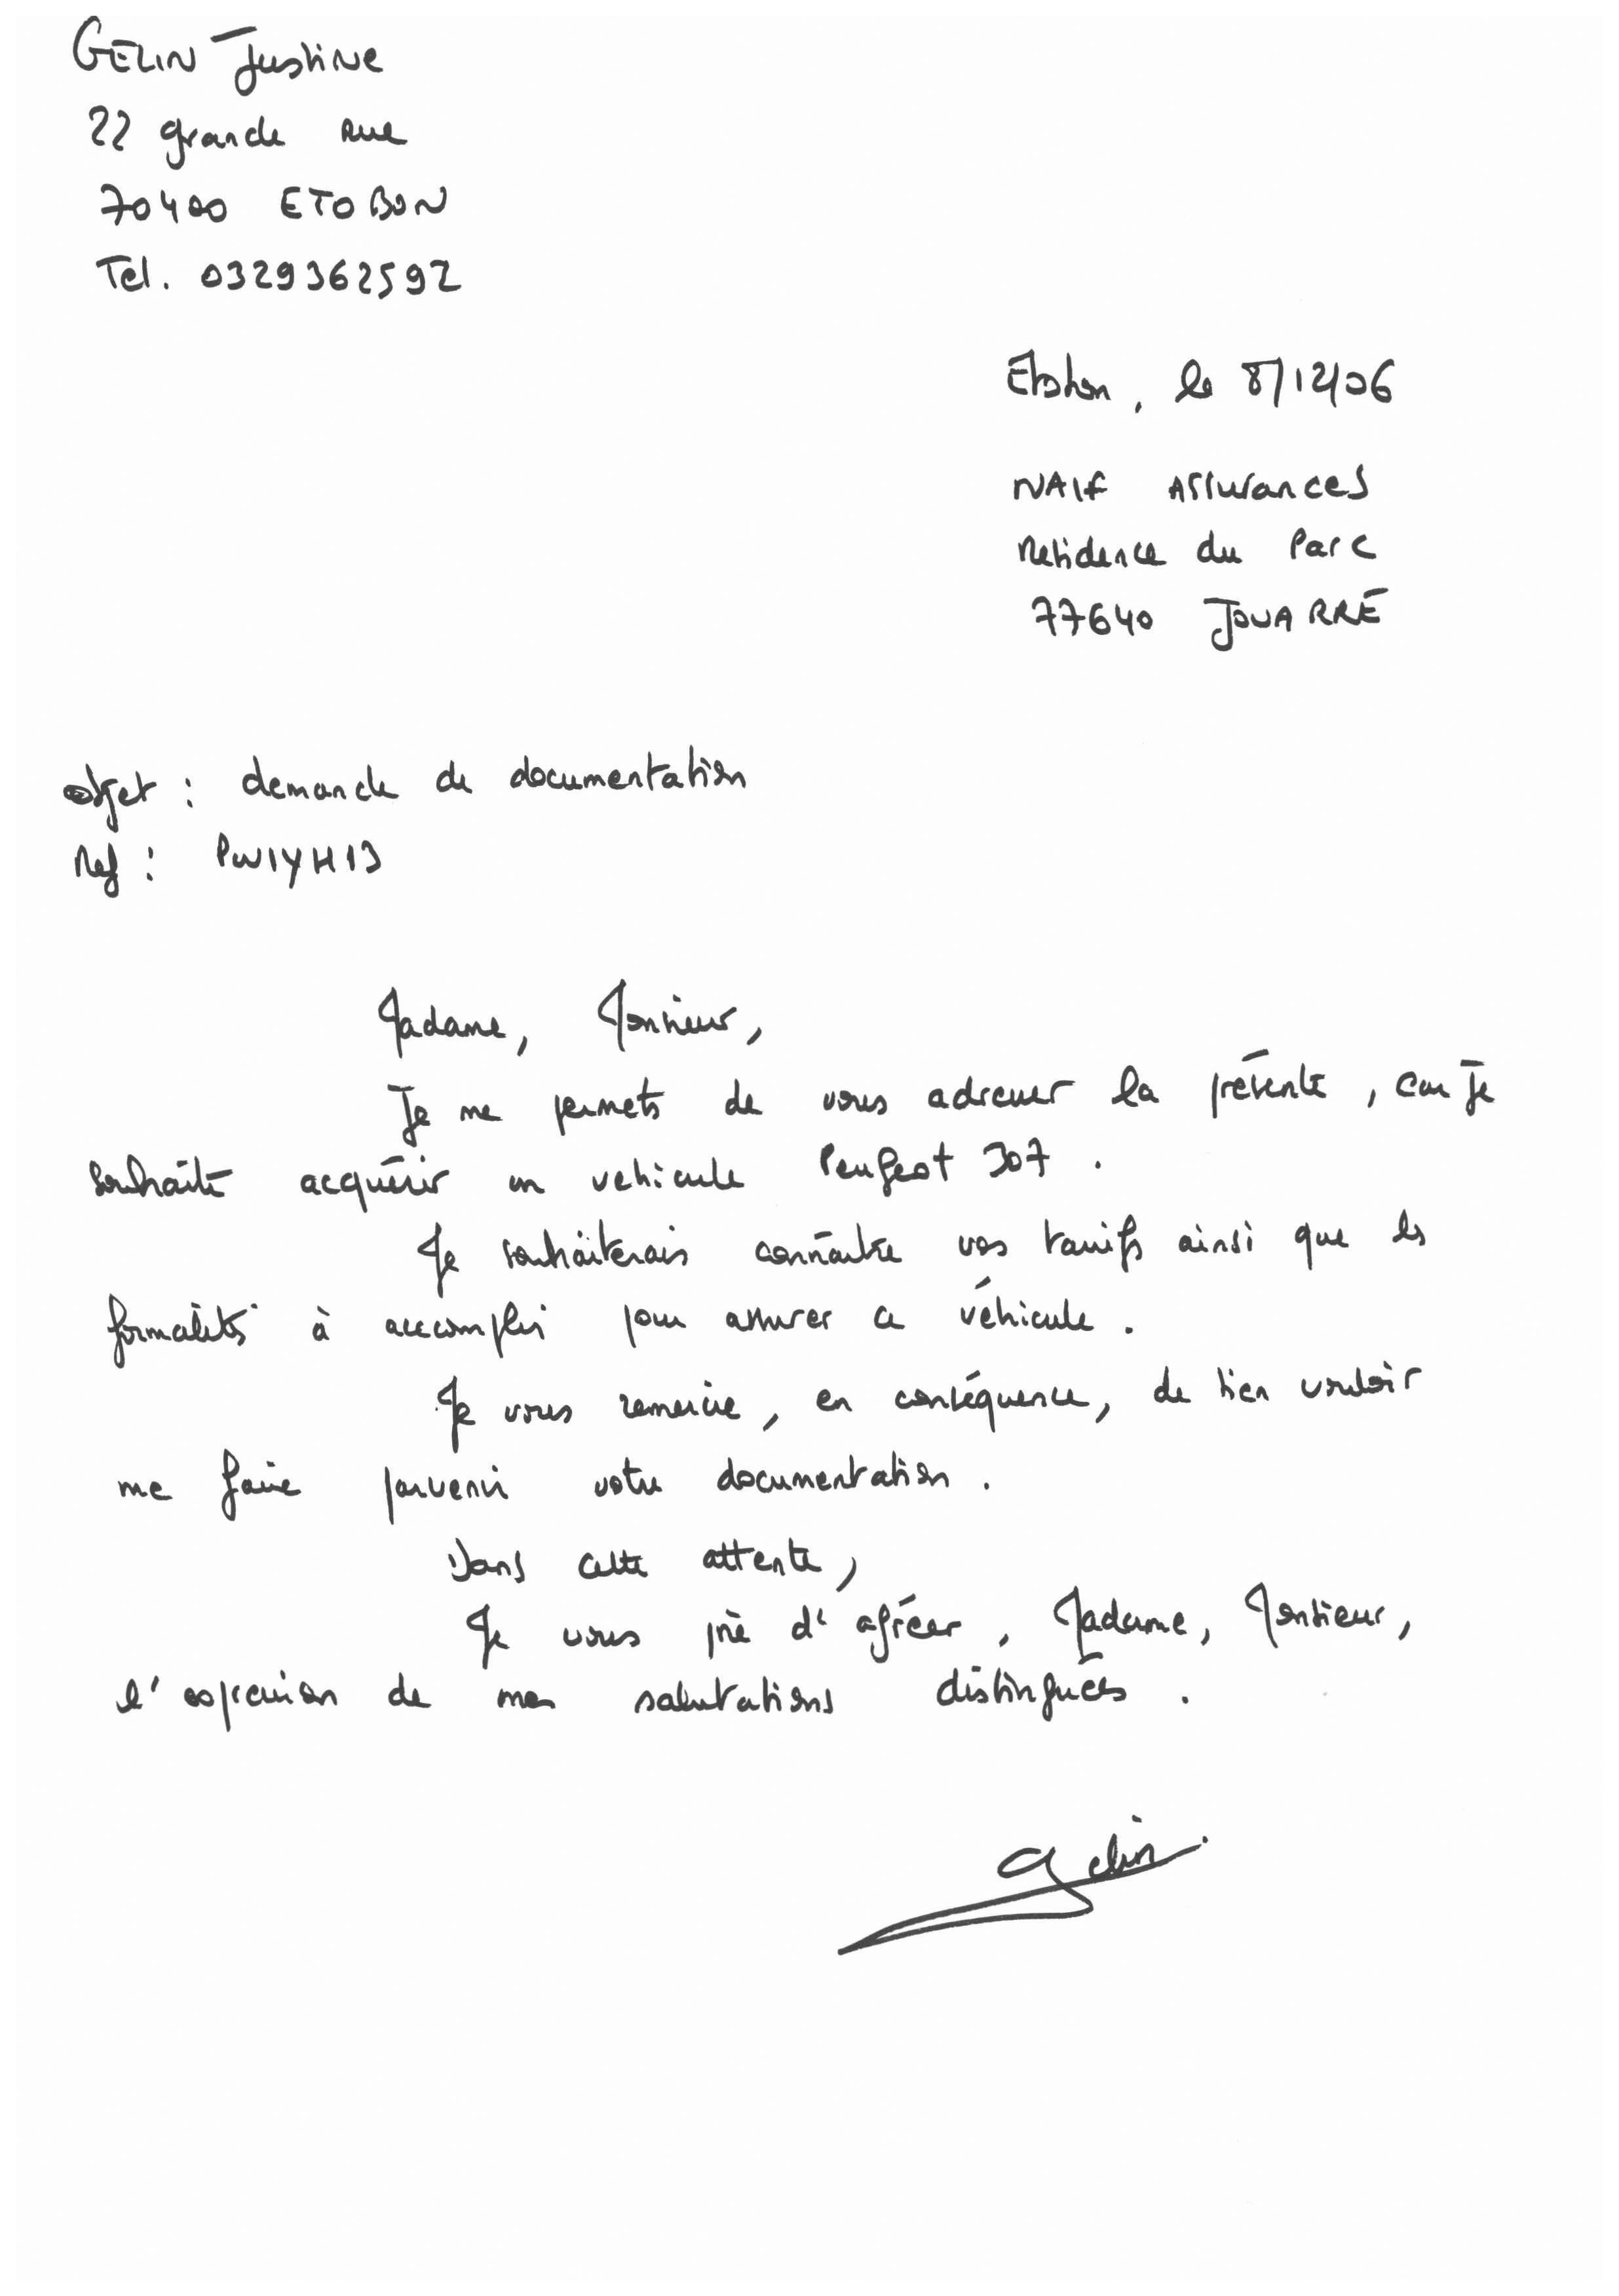 GELIN Justine
22 grande rue
70400 ETOBON
Tel. 0329362592
Etobon, le 8/12/06
NAIF Assurances
Residence du Parc
77640 JOUARRE
objet : demande de documentation
Ref : PWIYH13
Madame, Monsieur,
Je me permets de vous adresser la présente, car je
souhaite acquérir un vehicule Peugeot 307.
Je souhaiterais connaitre vos tarifs ainsi que les
formalités à accomplir pour assurer ce véhicule.
Je vous remercie, en conséquence, de bien vouloir
me faire parvenir votre documentation.
Dans cette attente,
Je vous prie d'agréer, Madame, Monsieur,
l'expression de mes salutations distinguées.
Gelin